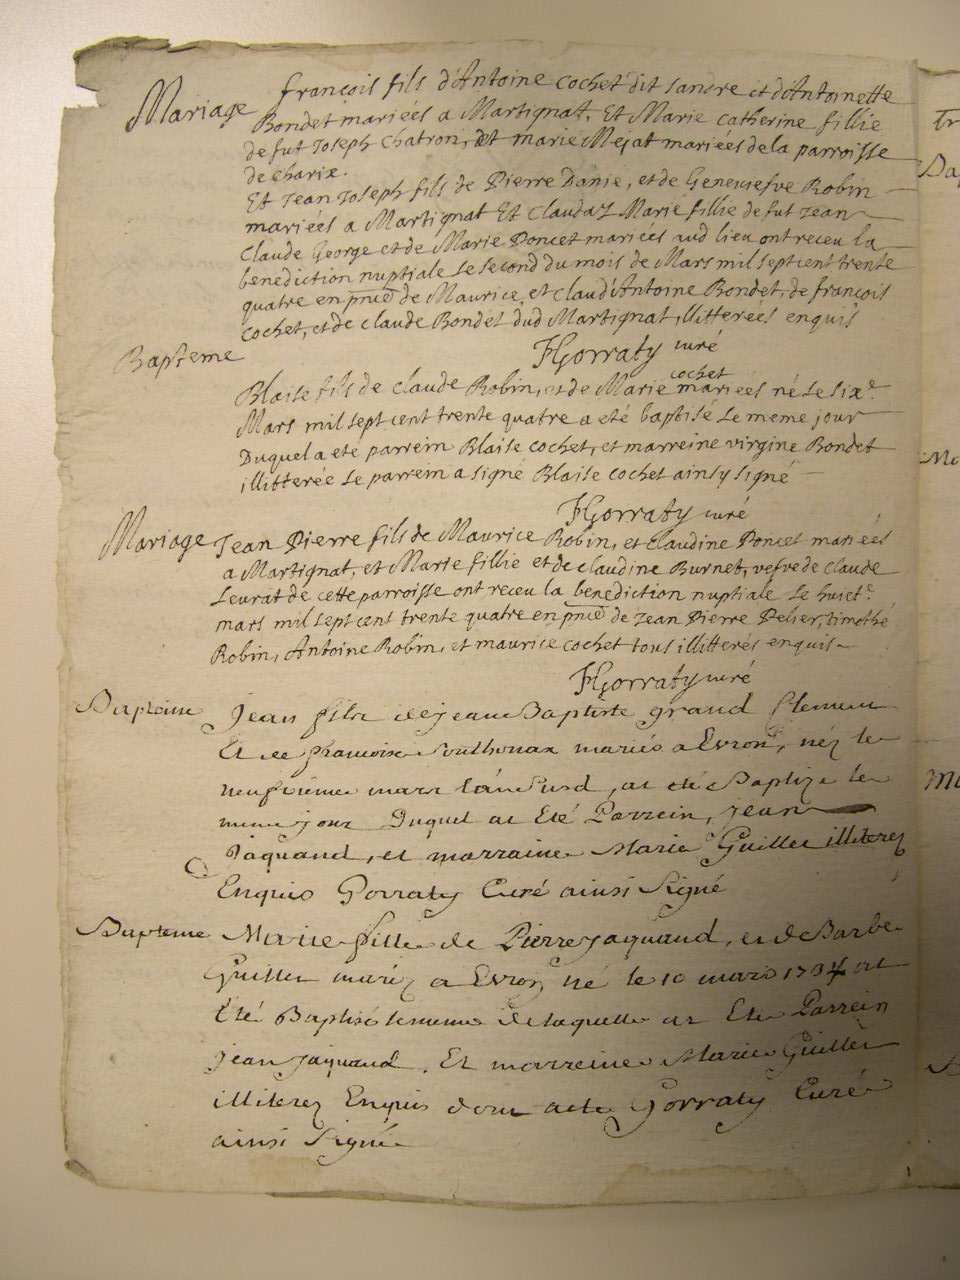 Mariage françois fils d'Antoine cochet dit sandre et d'Antoinette
Bondet mariéés a Martignat, Et Marie catherine fillie
de fut Joseph Chatron, et marie Mejat mariéés de la parroisse
de charix.
Et Jean Joseph fils de Pierre Danie, et de Geneviefve Robin
mariéés a Martignat Et Claudaz Marie fillie de fut Jean
Claude George et de Marie Poncet mariéés aud lieu ont receu la
benediction nuptiale le second du mois de Mars mil sept cent trente
quatre en pnce de Maurice, et claud'Antoine Bondet, de françois
cochet, et de claude Bondet dud Martignat, illitteréés enquis
Bapteme
FGorraty curé
cochet
Blaise fils de claude Robin, et de Marie mariéés né le sixe
Mars mil sept cent trente quatre a eté baptisé le meme jour
Duquel a eté parrein Blaise cochet, et marreine virgine Bondet
illitterée le parrein a signé Blaise cochet ainsy signé
FGorraty curé
Mariage Jean Pierre fils de Maurice Robin, et claudine Poncet mariéés
a Martignat, et Marie fillie et de claudine Burnet, vefve de claude
Levrat de cette parroisse ont receu la benediction nuptiale le huiete
mars mil sept cent trente quatre en pnce de Jean Pierre Pelier, timothé
Robin, Antoine Robin, et maurice cochet tous illitterés enquis
FGorraty curé
Bapteme Jean fils de jean Baptiste grand Clement
Et de francoise Southonax mariés a Evron, néz le
neufvieme mars l'an susd, at eté Baptize le
meme jour Duquel at Eté Parrein, Jean
Jaquand, et marraine Marie Guillet illiterez
Enquis Gorraty Curé ainsi Signé
Bapteme Marie fille de Pierre Jaquand, et de Barbe
Guillet mariéz a Evron né le 10 mars 1734 at
Eté Baptisé le meme de laquelle at Eté Parrein
Jean Jaquand, Et marreine Marie Guillet
illiterez Enquis dont acte Gorraty Curé
ainsi Signé